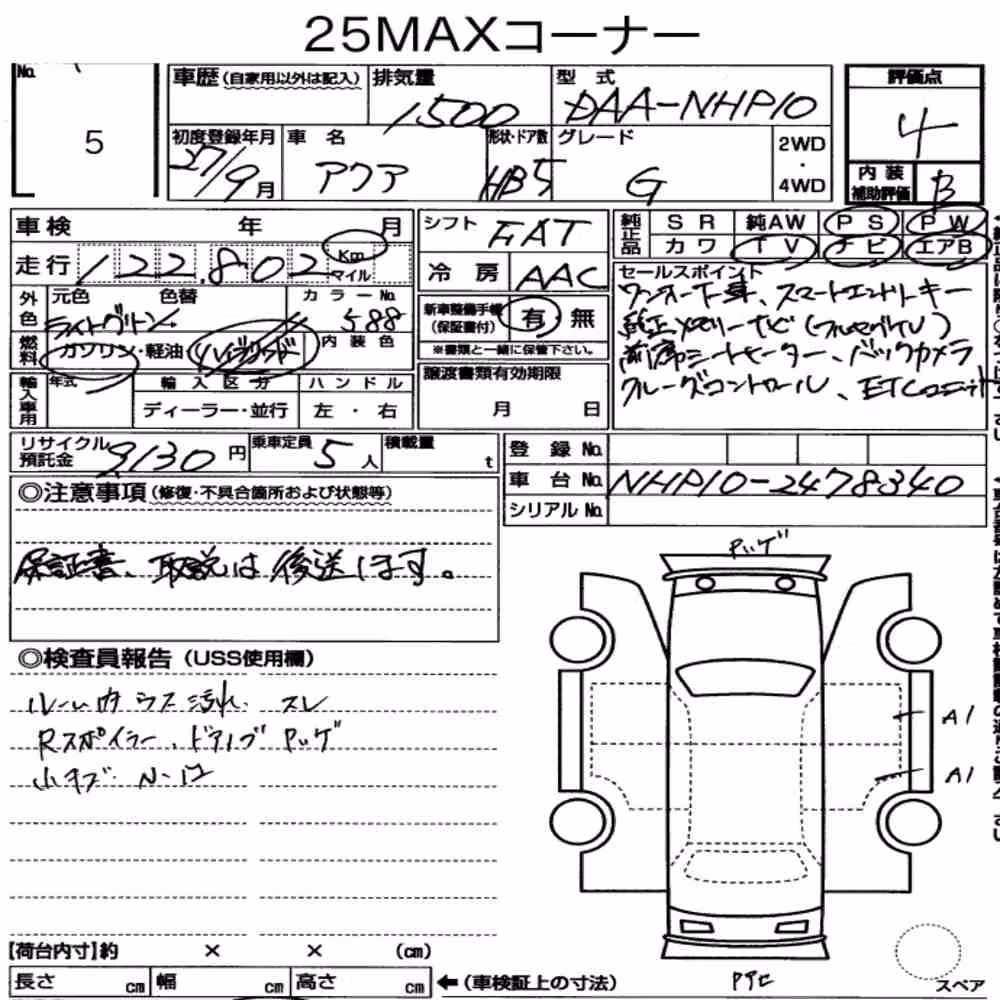 25MAXコーナー
No.
5
車歴 (自家用以外は記入)
排気量
1500
型式
DAA-NHP10
評価点
4
初度登録年月
27/9月
車名
アクア
形状・ドア数
HB5
グレード
G
2WD
・
4WD
内装
補助評価
B
車検 年 月
シフト
FAT
純正品
SR 純AW PS PW
カワ TV ナビ エアB
走行 122,802 Km マイル
冷房
AAC
セールスポイント
ワンオーナー車、スマートエントリーキー
純正メモリーナビ(フルセグTV)
前席シートヒーター、バックカメラ
クルーズコントロール、ETCユニット
外色
元色 色替
カラーNo.
588
新車整備手帳
(保証書付)
有 無
※書類と一緒に保管下さい。
燃料
ガソリン・軽油 ハイブリッド
内装色
輸入車用
年式
輸入区分
ディーラー・並行
ハンドル
左・右
譲渡書類有効期限
月 日
リサイクル
預託金
9130円
乗車定員
5人
積載量
t
登録No.
車台No.
NHP10-2478340
シリアルNo.
◎注意事項(修復・不具合箇所および状態等)
保証書、取説は後送します。
◎検査員報告(USS使用欄)
ルーム内ウス汚れ スレ
Rスポイラー、ドアノブ ハゲ
小キズ
A1
A1
【荷台内寸】約 × × (cm)
長さ cm 幅 cm 高さ cm
←(車検証上の寸法)
スペア